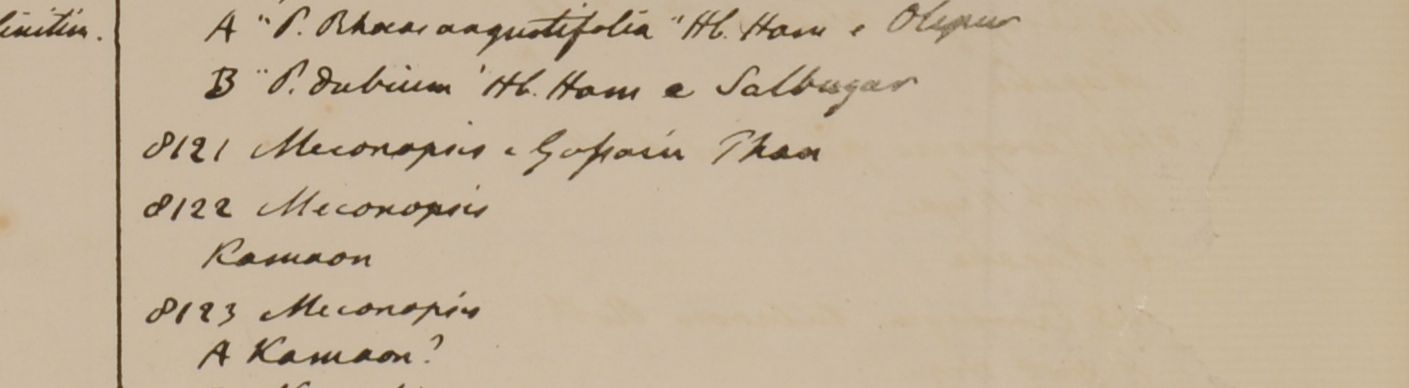 A "P. Rhoeas angustifolia" Hb. Ham e Olipur
B "P. dubium" Hb. Ham e Salbugar
8121 Meconopsis e Gossain Than
8122 Meconopsis
Kamaon
8123 Meconopsis
A Kamaon?